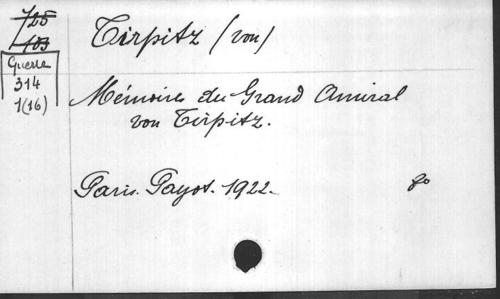 725
103
Guerre
314
1(16)
Tirpitz (von)
Mémoires du Grand Amiral
von Tirpitz.
Paris. Payot. 1922.
8º